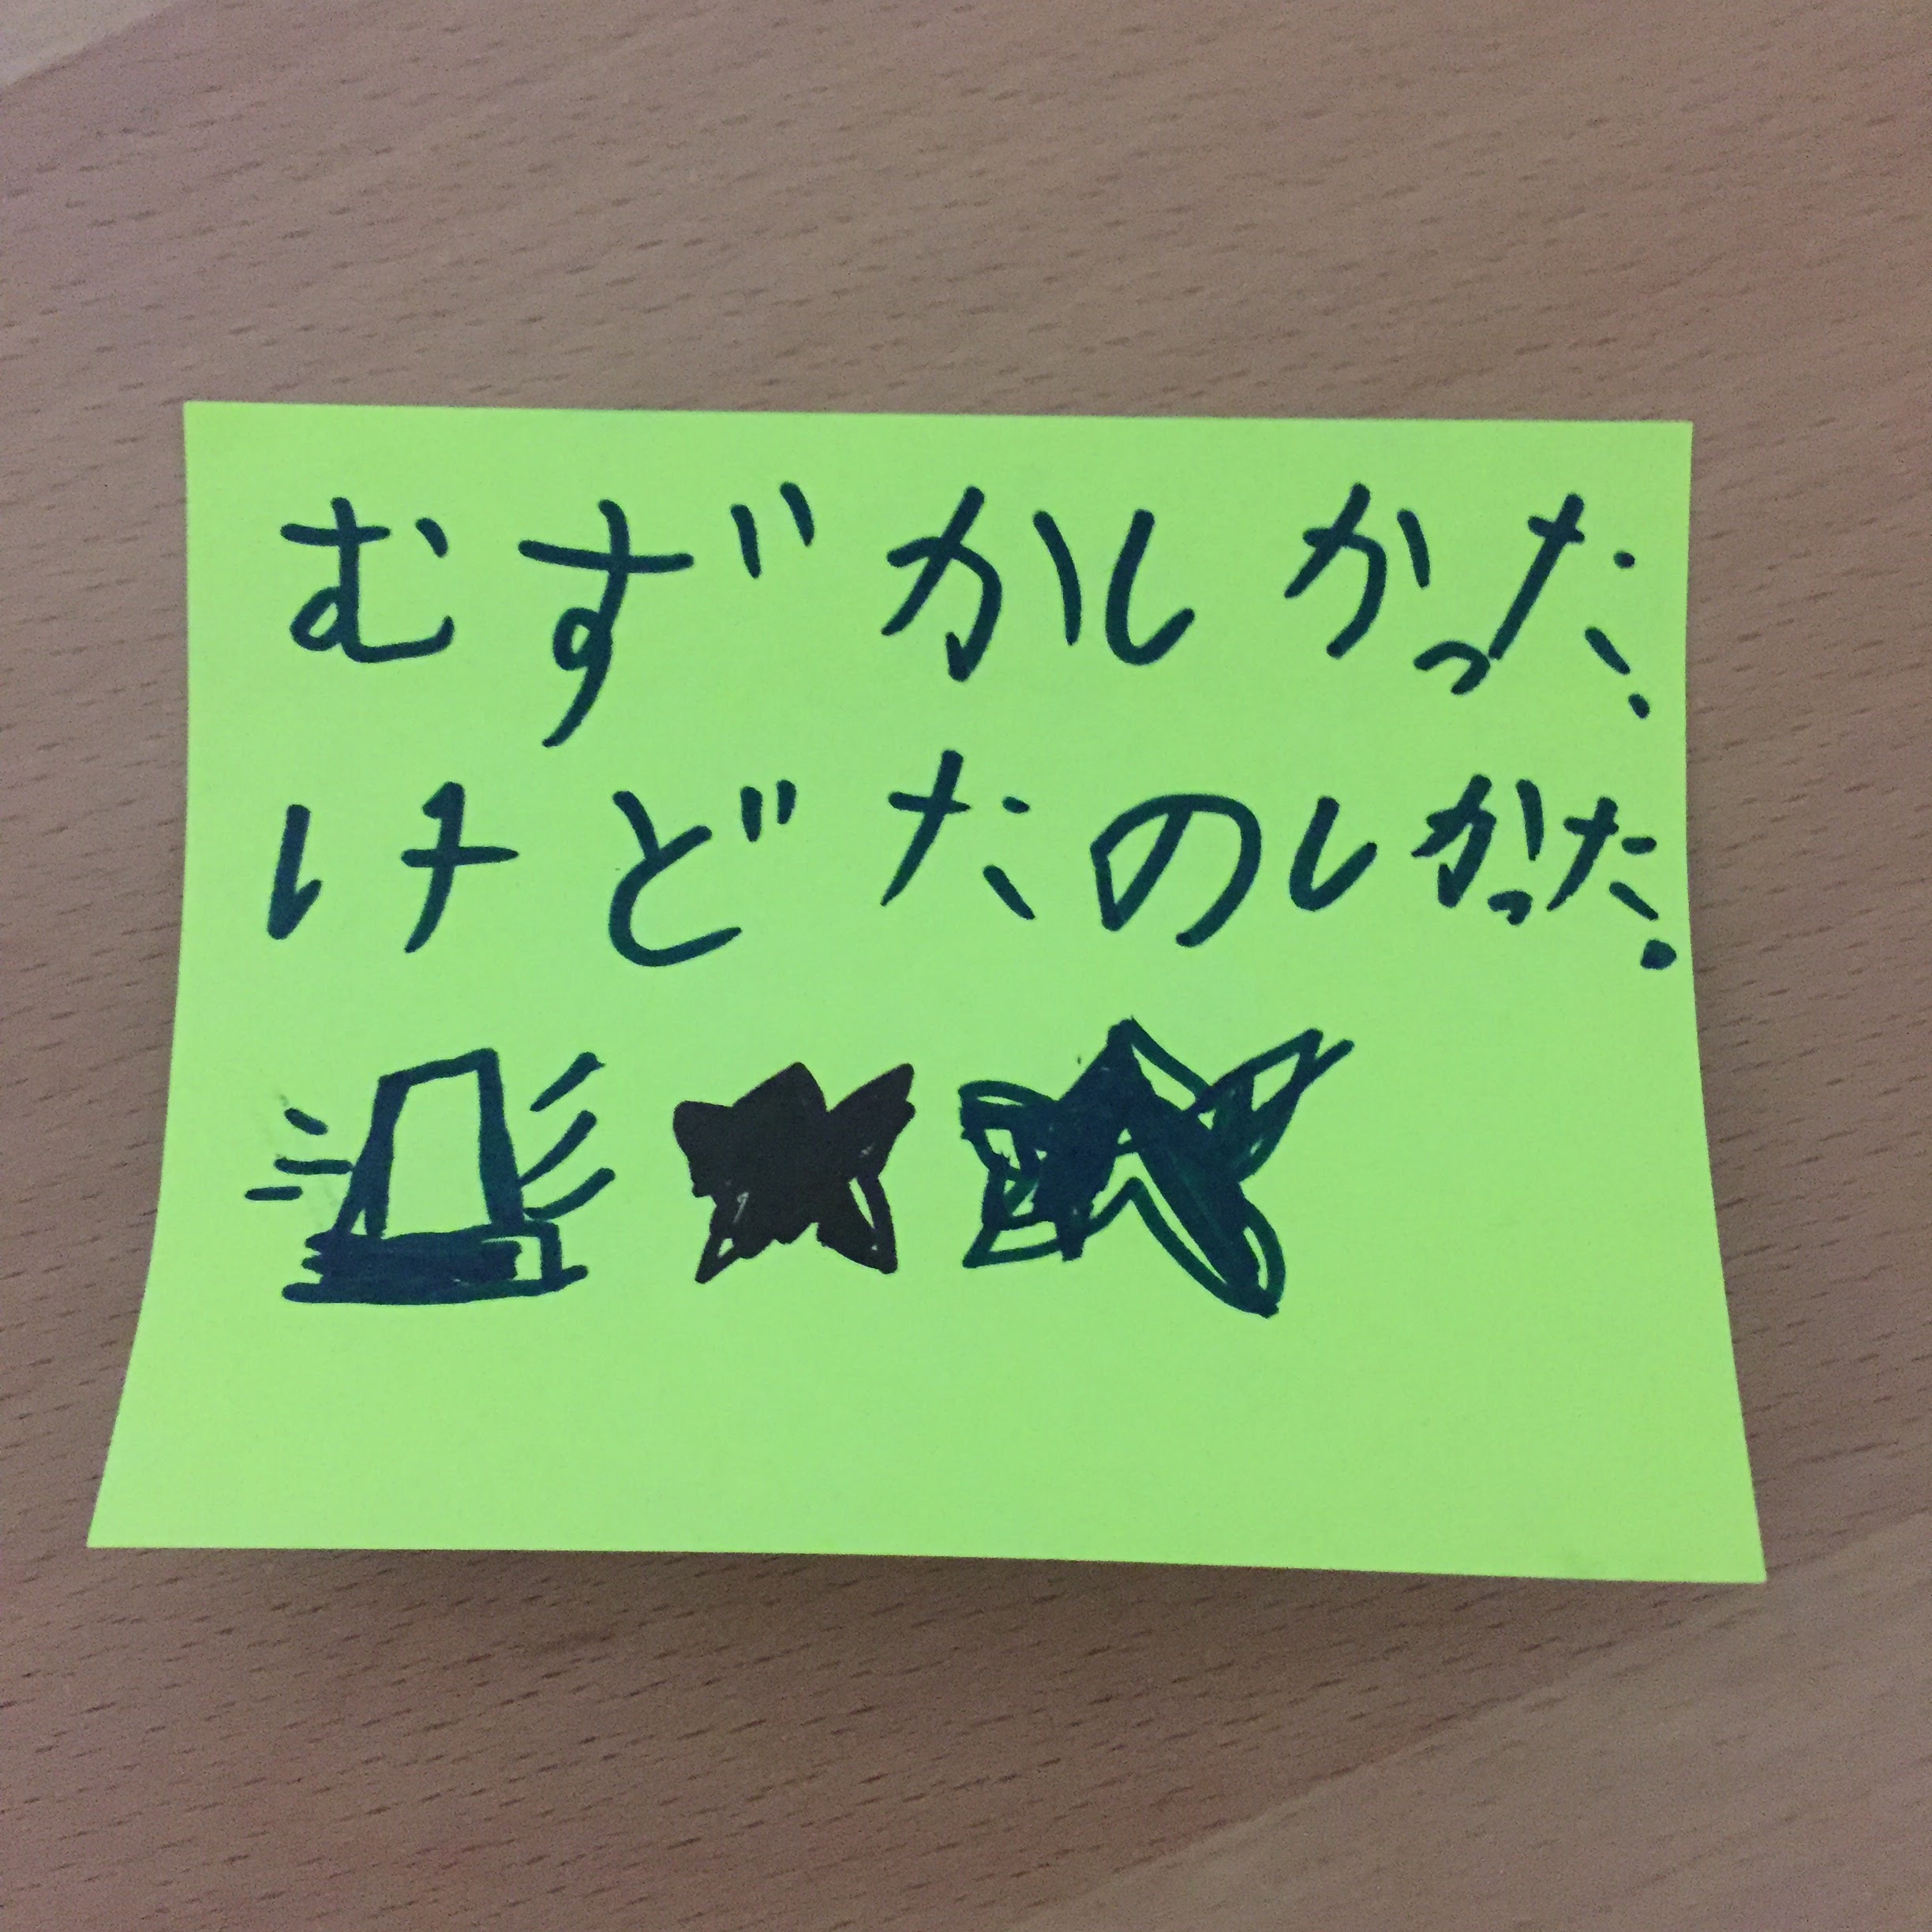 むずかしかった.
けどたのしかった.